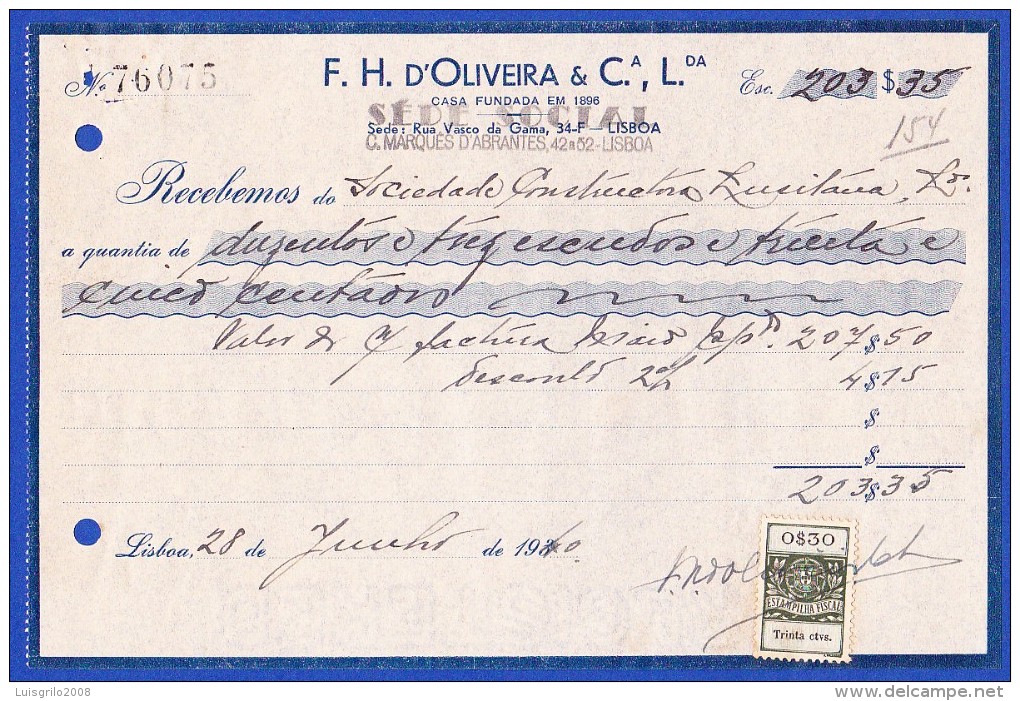 Nº 76075
F. H. D'OLIVEIRA & C.ᴬ, L.ᴰᴬ
Esc. 203 $ 35
CASA FUNDADA EM 1896
SÉDE SOCIAL
Sede: Rua Vasco da Gama, 34-F — LISBOA
C. MARQUES D'ABRANTES, 42 a 52 - LISBOA
154
Recebemos do Sociedade Constructora Lusitana, Lª.
a quantia de duzentos e trez escudos e trinta e
cinco centavos
Valor da n/ factura Maio 207 $ 50
Desconto 2% 4 $ 15
$
$
203 $ 35
Lisboa, 28 de Junho de 1940
0$30
ESTAMPILHA FISCAL
Trinta ctvs.
Luisgrilo2008
delcampe.net